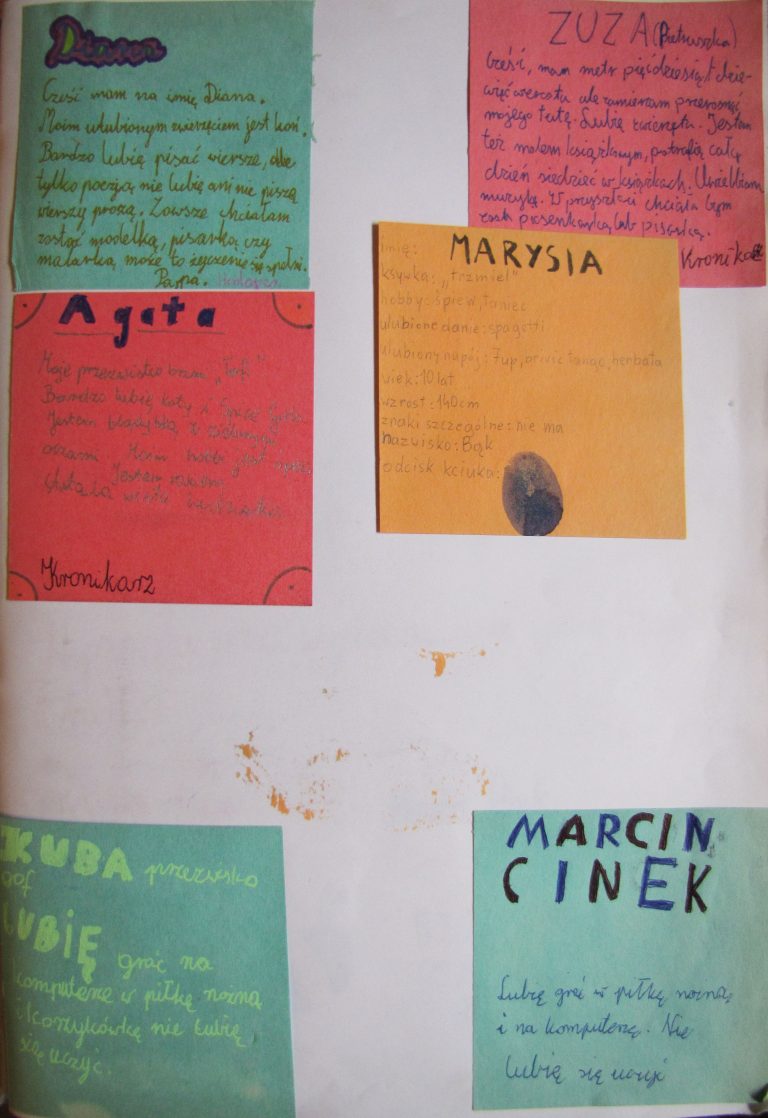 Diana
Cześć mam na imię Diana.
Moim ulubionym zwierzęciem jest koń.
Bardzo lubię pisać wiersze, ale
tylko poezją nie lubię ani nie piszę
wierszy prozą. Zawsze chciałam
zostać modelką, pisarką czy
malarką może to życzenie się spełni.
Pa pa.
ZUZA (Pietruszka)
Cześć, mam metr pięćdziesiąt dzie-
więć wzrostu ale zamierzam przerosnąć
mojego tatę. Lubię zwierzęta. Jestem
też molem książkowym, potrafię cały
dzień siedzieć w książkach. Uwielbiam
muzykę. W przyszłości chciała bym
zostać piosenkarką lub pisarką.
Kronika
MARYSIA
imię:
ksywka: „trzmiel"
hobby: śpiew, taniec
ulubione danie: spagetti
ulubiony napój: 7up, herbata
wiek: 10 lat
wzrost: 140 cm
znaki szczególne: nie ma
nazwisko: Bąk
odcisk kciuka:
Agata
Moje przezwisko brzmi
Bardzo lubię koty i
Jestem z zielonymi
oczami. Moim hobby jest
Jestem
Kronikarz
KUBA przezwisko
gof
LUBIĘ grać na
komputerze w piłkę nożną
i koszykówkę nie lubię
się uczyć.
MARCIN
CINEK
Lubię grać w piłkę nożną
i na komputerze. Nie
lubię się uczyć